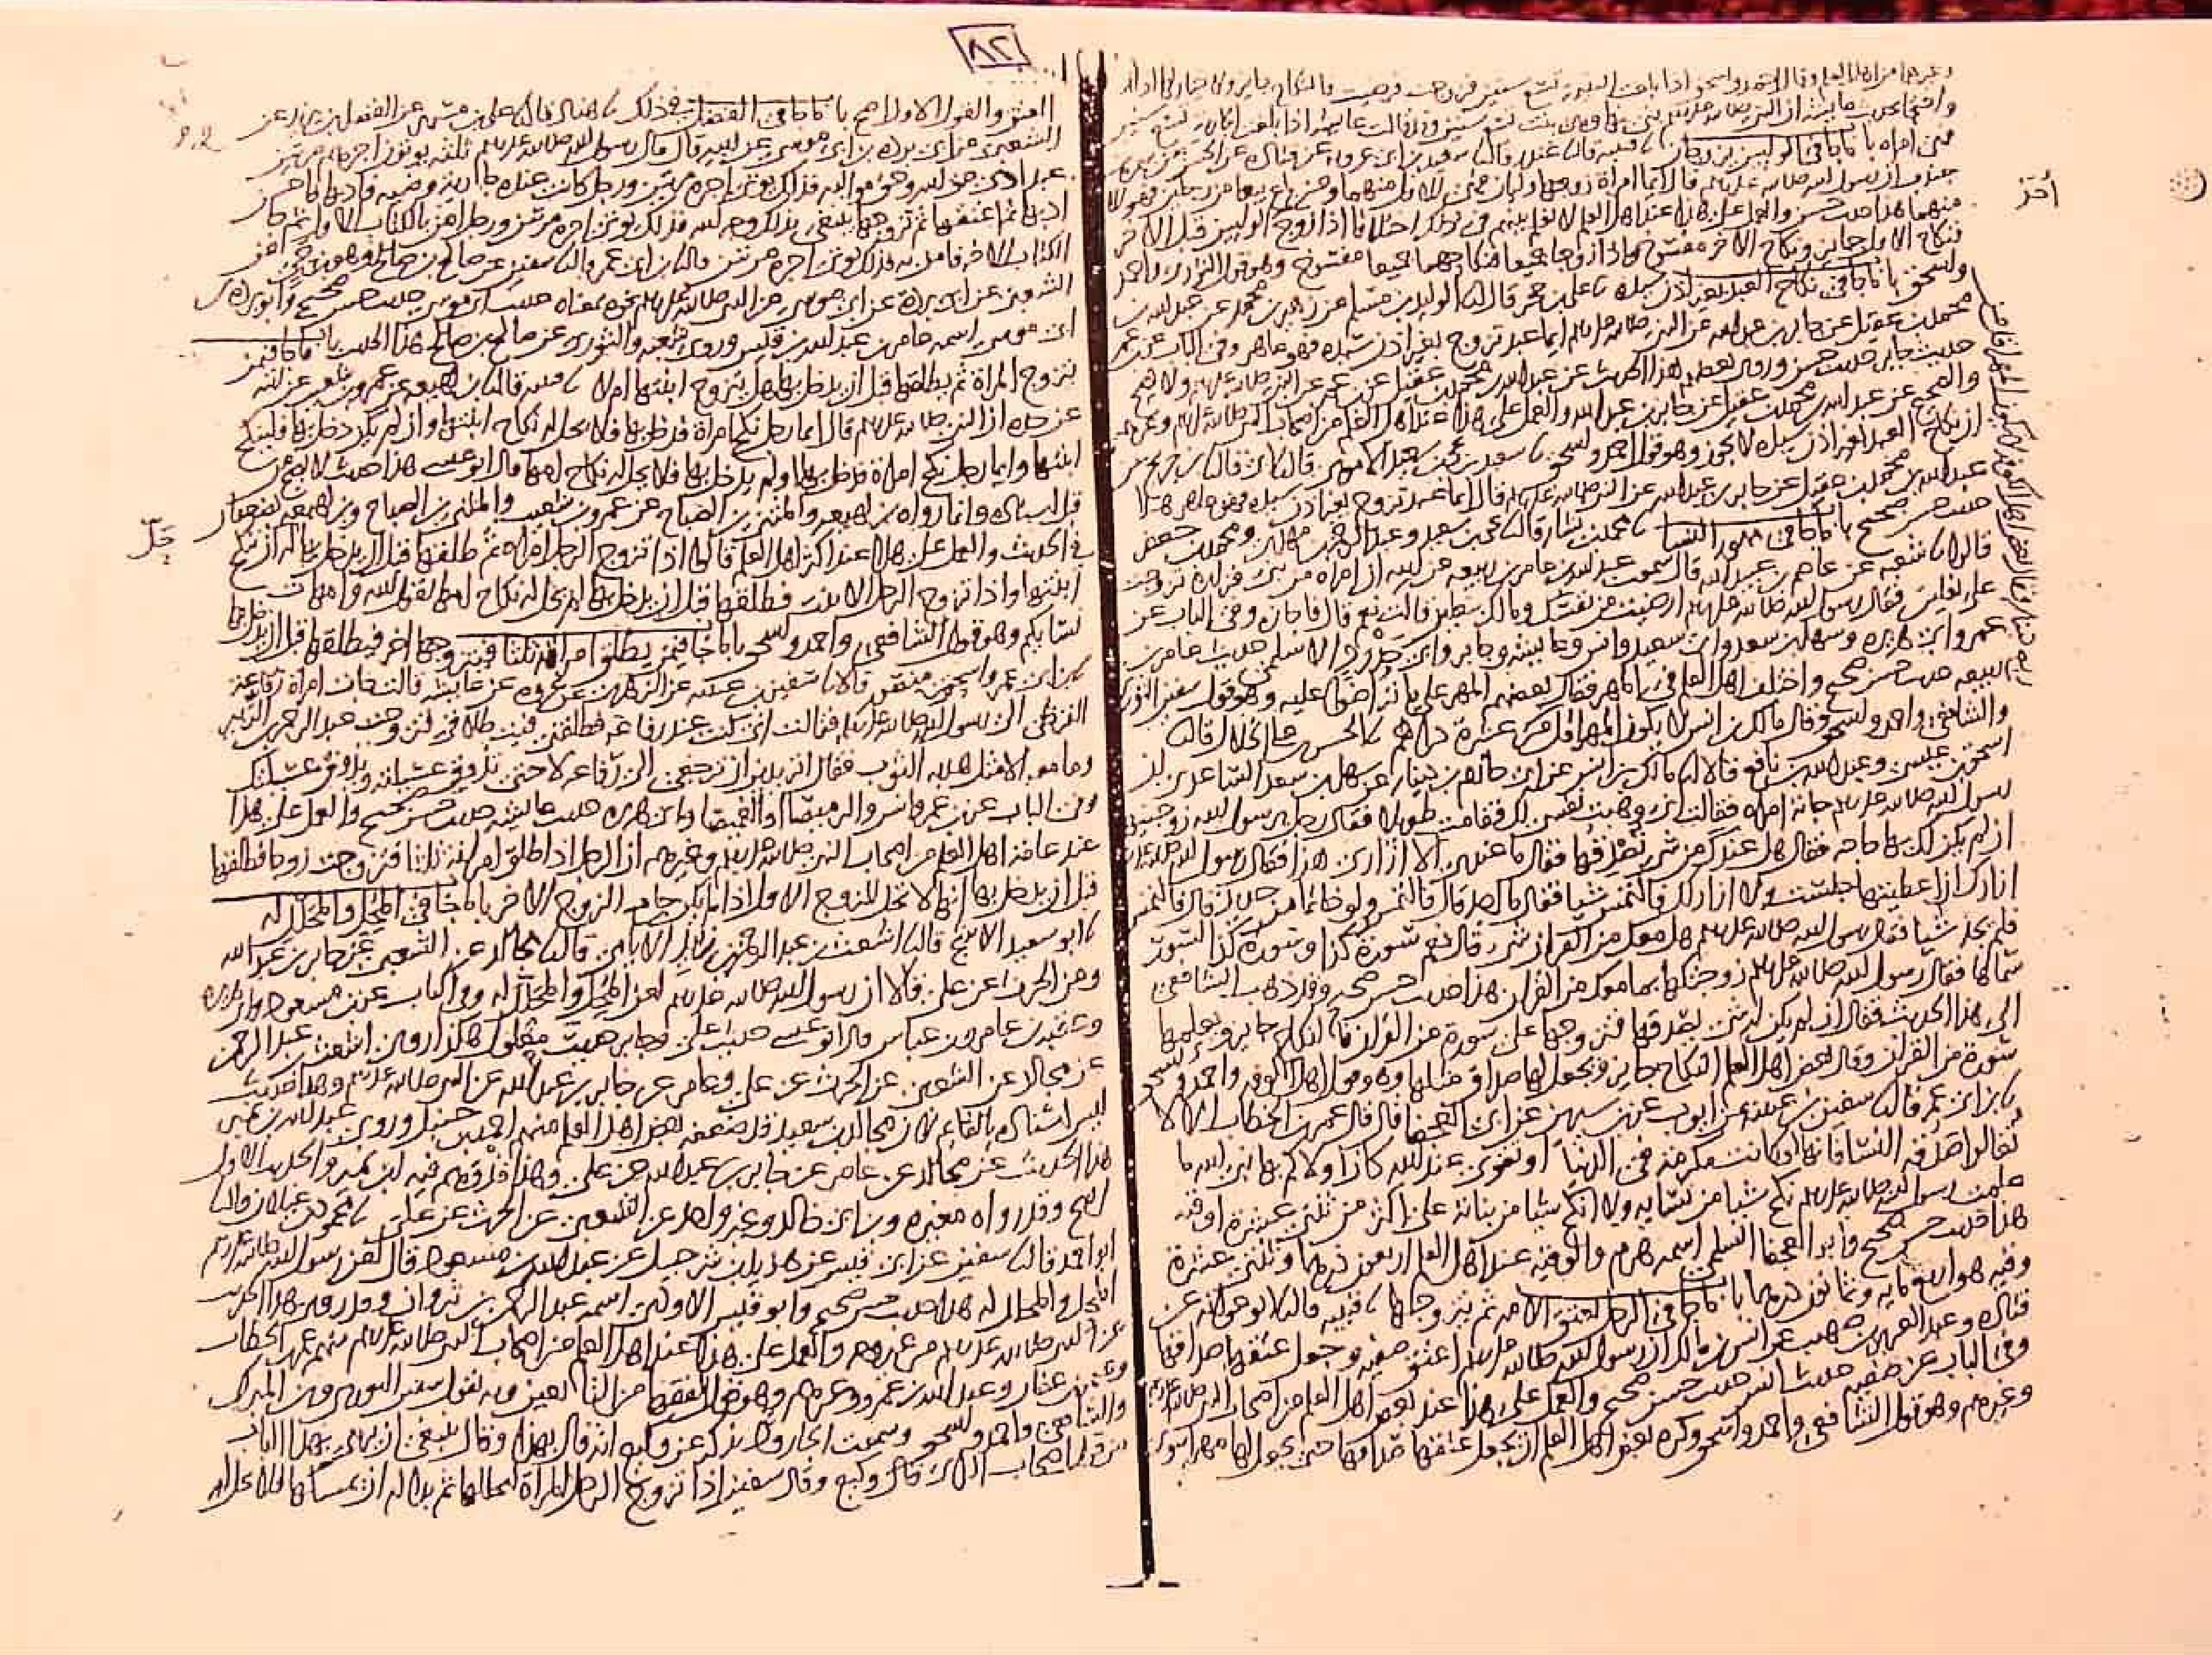 وغيرهما من اهل العلم وقال احمد واسحق اذا بلغت اليتيمة تسع سنين فزوجت فرضيت فالنكاح جايز ولا خيار لها اذا ادركت
واحتجا بحديث عايشة ان النبي صلى الله عليه وسلم بنى بها وهي بنت تسع سنين وقد قالت عايشة اذا بلغت الجارية تسع سنين
فهي امراة باب ما جا في الوليين يزوجان نا قتيبة قال نا غندر قال نا سعيد بن ابي عروبة عن قتادة عن الحسن عن سمرة بن
جندب ان رسول الله صلى الله عليه وسلم قال ايما امراة زوجها وليان فهي للاول منهما ومن باع بيعا من رجلين فهو للاول
منهما هذا حديث حسن والعمل على هذا عند اهل العلم لا نعلم بينهم في ذلك اختلافا اذا زوج احد الوليين قبل الاخر
فنكاح الاول جايز ونكاح الاخر مفسوخ واذا زوجا جميعا فنكاحهما جميعا مفسوخ وهو قول الثوري واحمد
واسحق باب ما جا في نكاح العبد بغير اذن سيده نا علي بن حجر قال نا الوليد بن مسلم عن زهير بن محمد عن عبد الله بن
محمد بن عقيل عن جابر بن عبد الله عن النبي صلى الله عليه وسلم ايما عبد تزوج بغير اذن سيده فهو عاهر وفي الباب عن ابن عمر
حديث جابر حديث حسن وروى بعضهم هذا الحديث عن عبد الله بن محمد بن عقيل عن ابن عمر عن النبي صلى الله عليه وسلم ولا يصح
والصحيح عن عبد الله بن محمد بن عقيل عن جابر بن عبد الله والعمل على هذا عند اهل العلم من اصحاب النبي صلى الله عليه وسلم وغيرهم
ان نكاح العبد بغير اذن سيده لا يجوز وهو قول احمد واسحق نا سعيد بن يحيى بن سعيد الاموي قال نا ابي قال نا ابن جريج عن
عبد الله بن محمد بن عقيل عن جابر بن عبد الله عن النبي صلى الله عليه وسلم قال ايما عبد تزوج بغير اذن سيده فهو عاهر هذا
حديث حسن صحيح باب ما جا في مهور النسا نا محمد بن بشار قال نا يحيى بن سعيد وعبد الرحمن بن مهدي ومحمد بن جعفر
قالوا نا شعبة عن عاصم بن عبيد الله قال سمعت عبد الله بن عامر بن ربيعة عن ابيه ان امراة من بني فزارة تزوجت
على نعلين فقال رسول الله صلى الله عليه وسلم ارضيت من نفسك ومالك بنعلين قالت نعم قال فاجازه وفي الباب عن
عمر وابي هريرة وسهل بن سعد وابي سعيد وانس وعايشة وجابر وابي حدرد الاسلمي حديث عامر بن
ربيعة حديث حسن صحيح واختلف اهل العلم في المهر فقال بعضهم المهر على ما تراضوا عليه وهو قول سفين الثوري
والشافعي واحمد واسحق وقال مالك بن انس لا يكون المهر اقل من عشرة دراهم نا الحسن بن علي الخلال قال نا
اسحق بن عيسى وعبد الله بن نافع قالا نا مالك بن انس عن ابي حازم بن دينار عن سهل بن سعد الساعدي ان
رسول الله صلى الله عليه وسلم جاته امراة فقالت اني وهبت نفسي لك فقامت طويلا فقال رجل يا رسول الله زوجنيها
ان لم يكن لك بها حاجة فقال هل عندك من شي تصدقها فقال ما عندي الا ازاري هذا فقال رسول الله صلى الله عليه وسلم
ازارك ان اعطيتها جلست ولا ازار لك فالتمس شيا فقال ما اجد قال فالتمس ولو خاتما من حديد قال فالتمس
فلم يجد شيا فقال رسول الله صلى الله عليه وسلم هل معك من القران شي قال نعم سورة كذا وسورة كذا لسور
سماها فقال رسول الله صلى الله عليه وسلم زوجتكها بما معك من القران هذا حديث حسن صحيح وقد ذهب الشافعي
الى هذا الحديث فقال ان لم يكن له شي يصدقها فتزوجها على سورة من القران فالنكاح جايز ويعلمها
سورة من القران وقال بعض اهل العلم النكاح جايز ويجعل لها صداق مثلها وهو قول اهل الكوفة واحمد واسحق
نا ابن ابي عمر قال نا سفين بن عيينة عن ايوب عن ابن سيرين عن ابي العجفا قال قال عمر بن الخطاب الا لا
تغالوا صدقة النسا فانها لو كانت مكرمة في الدنيا او تقوى عند الله كان اولاكم بها نبي الله ما
علمت رسول الله صلى الله عليه وسلم نكح شيا من نسايه ولا انكح شيا من بناته على اكثر من ثنتي عشرة اوقية
هذا حديث حسن صحيح وابو العجفا السلمي اسمه هرم والوقية عند اهل العلم اربعون درهما وثنتي عشرة
وقية هو اربع ماية وثمانون درهما باب ما جا في الرجل يعتق الامة ثم يتزوجها نا قتيبة قال نا ابو عوانة عن
قتادة وعبد العزيز بن صهيب عن انس بن مالك ان رسول الله صلى الله عليه وسلم اعتق صفية وجعل عتقها صداقها
وفي الباب عن صفية حديث انس حديث حسن صحيح والعمل على هذا عند بعض اهل العلم من اصحاب النبي صلى الله عليه وسلم
وغيرهم وهو قول الشافعي واحمد واسحق وكره بعض اهل العلم ان يجعل عتقها صداقها حتى يجعل لها مهرا سوى
٨٢
العتق والقول الاول اصح باب ما جا في الفضل في ذلك نا هناد قال نا علي بن مسهر عن الفضل بن يزيد عن
الشعبي عن ابي بردة بن ابي موسى عن ابيه قال قال رسول الله صلى الله عليه وسلم ثلثة يوتون اجرهم مرتين
عبد ادى حق الله وحق مواليه فذلك يوتى اجره مرتين ورجل كانت عنده جارية وضيية فادبها فاحسن
ادبها ثم اعتقها ثم تزوجها يبتغي بذلك وجه الله فذلك يوتى اجره مرتين ورجل امن بالكتاب الاول ثم جا
الكتاب الاخر فامن به فذلك يوتى اجره مرتين قال نا ابن ابي عمر قال نا سفين عن صالح بن صالح وهو ابن حي عن
الشعبي عن ابي بردة عن ابي موسى عن النبي صلى الله عليه وسلم نحوه بمعناه حديث ابي موسى حديث حسن صحيح وابو بردة بن
ابي موسى اسمه عامر بن عبد الله بن قيس وروى شعبة والثوري عن صالح بن صالح هذا الحديث باب ما جا فيمن
يتزوج المراة ثم يطلقها قبل ان يدخل بها هل يتزوج ابنتها ام لا نا قتيبة قال نا ابن لهيعة عن عمرو بن شعيب عن ابيه
عن جده ان النبي صلى الله عليه وسلم قال ايما رجل نكح امراة فدخل بها فلا يحل له نكاح ابنتها وان لم يكن دخل بها فلينكح
ابنتها وايما رجل نكح امراة فدخل بها او لم يدخل بها فلا يحل له نكاح امها قال ابو عيسى هذا حديث لا يصح من
قبل اسناده وانما رواه ابن لهيعة والمثنى بن الصباح عن عمرو بن شعيب والمثنى بن الصباح وابن لهيعة يضعفان
في الحديث والعمل على هذا عند اكثر اهل العلم قالوا اذا تزوج الرجل امراة ثم طلقها قبل ان يدخل بها حل له ان ينكح
ابنتها واذا تزوج الرجل الابنت فطلقها قبل ان يدخل بها لم يحل له نكاح امها لقول الله وامهات
نسايكم وهو قول الشافعي واحمد واسحق باب ما جا فيمن يطلق امراته ثلثا فيتزوجها اخر فيطلقها قبل ان يدخل بها
نا ابن ابي عمر واسحق بن منصور قالا نا سفين بن عيينة عن الزهري عن عروة عن عايشة قالت جات امراة رفاعة
القرظي الى رسول الله صلى الله عليه وسلم فقالت اني كنت عند رفاعة فطلقني فبت طلاقي فتزوجت عبد الرحمن بن الزبير
وما معه الا مثل هدبة الثوب فقال اتريدين ان ترجعي الى رفاعة لا حتى تذوقي عسيلته ويذوق عسيلتك
وفي الباب عن ابن عمر وانس والرميصا او الغميصا وابي هريرة حديث عايشة حديث حسن صحيح والعمل على هذا
عند عامة اهل العلم من اصحاب النبي صلى الله عليه وسلم وغيرهم ان الرجل اذا طلق امراته ثلثا فتزوجت زوجا فطلقها
قبل ان يدخل بها انها لا تحل للزوج الاول اذا لم يكن جامع الزوج الاخر باب ما جا في المحل والمحلل له
نا ابو سعيد الاشج قال نا اشعث بن عبد الرحمن بن زبيد الايامي قال نا مجالد عن الشعبي عن جابر بن عبد الله
وعن الحرث عن علي قالا ان رسول الله صلى الله عليه وسلم لعن المحل والمحلل له وفي الباب عن ابن مسعود وابي هريرة
وعقبة بن عامر وابن عباس قال ابو عيسى حديث علي وجابر حديث معلول هكذا روى اشعث بن عبد الرحمن
عن مجالد عن الشعبي عن الحرث عن علي وعامر عن جابر بن عبد الله عن النبي صلى الله عليه وسلم وهذا حديث
ليس اسناده بالقايم لان مجالد بن سعيد قد ضعفه بعض اهل العلم منهم احمد بن حنبل وروى عبد الله بن نمير
هذا الحديث عن مجالد عن عامر عن جابر بن عبد الله عن علي وهذا قد وهم فيه ابن نمير والحديث الاول
اصح وقد رواه مغيرة وابن ابي خالد وغير واحد عن الشعبي عن الحرث عن علي نا محمود بن غيلان قال نا
ابو احمد قال نا سفين عن ابي قيس عن هذيل بن شرحبيل عن عبد الله بن مسعود قال لعن رسول الله صلى الله عليه وسلم
المحل والمحلل له هذا حديث حسن صحيح وابو قيس الاودي اسمه عبد الرحمن بن ثروان وقد روي هذا الحديث
عن النبي صلى الله عليه وسلم من غير وجه والعمل على هذا عند اهل العلم من اصحاب النبي صلى الله عليه وسلم منهم عمر بن الخطاب
وعثمن بن عفان وعبد الله بن عمرو وغيرهم وهو قول الفقها من التابعين وبه يقول سفين الثوري وابن المبارك
والشافعي واحمد واسحق وسمعت الجارود يذكر عن وكيع انه قال بهذا وقال ينبغي ان يرمى بهذا الباب
من قول اصحاب الراي قال وكيع وقال سفين اذا تزوج الرجل المراة ليحلها ثم بدا له ان يمسكها فلا يحل له